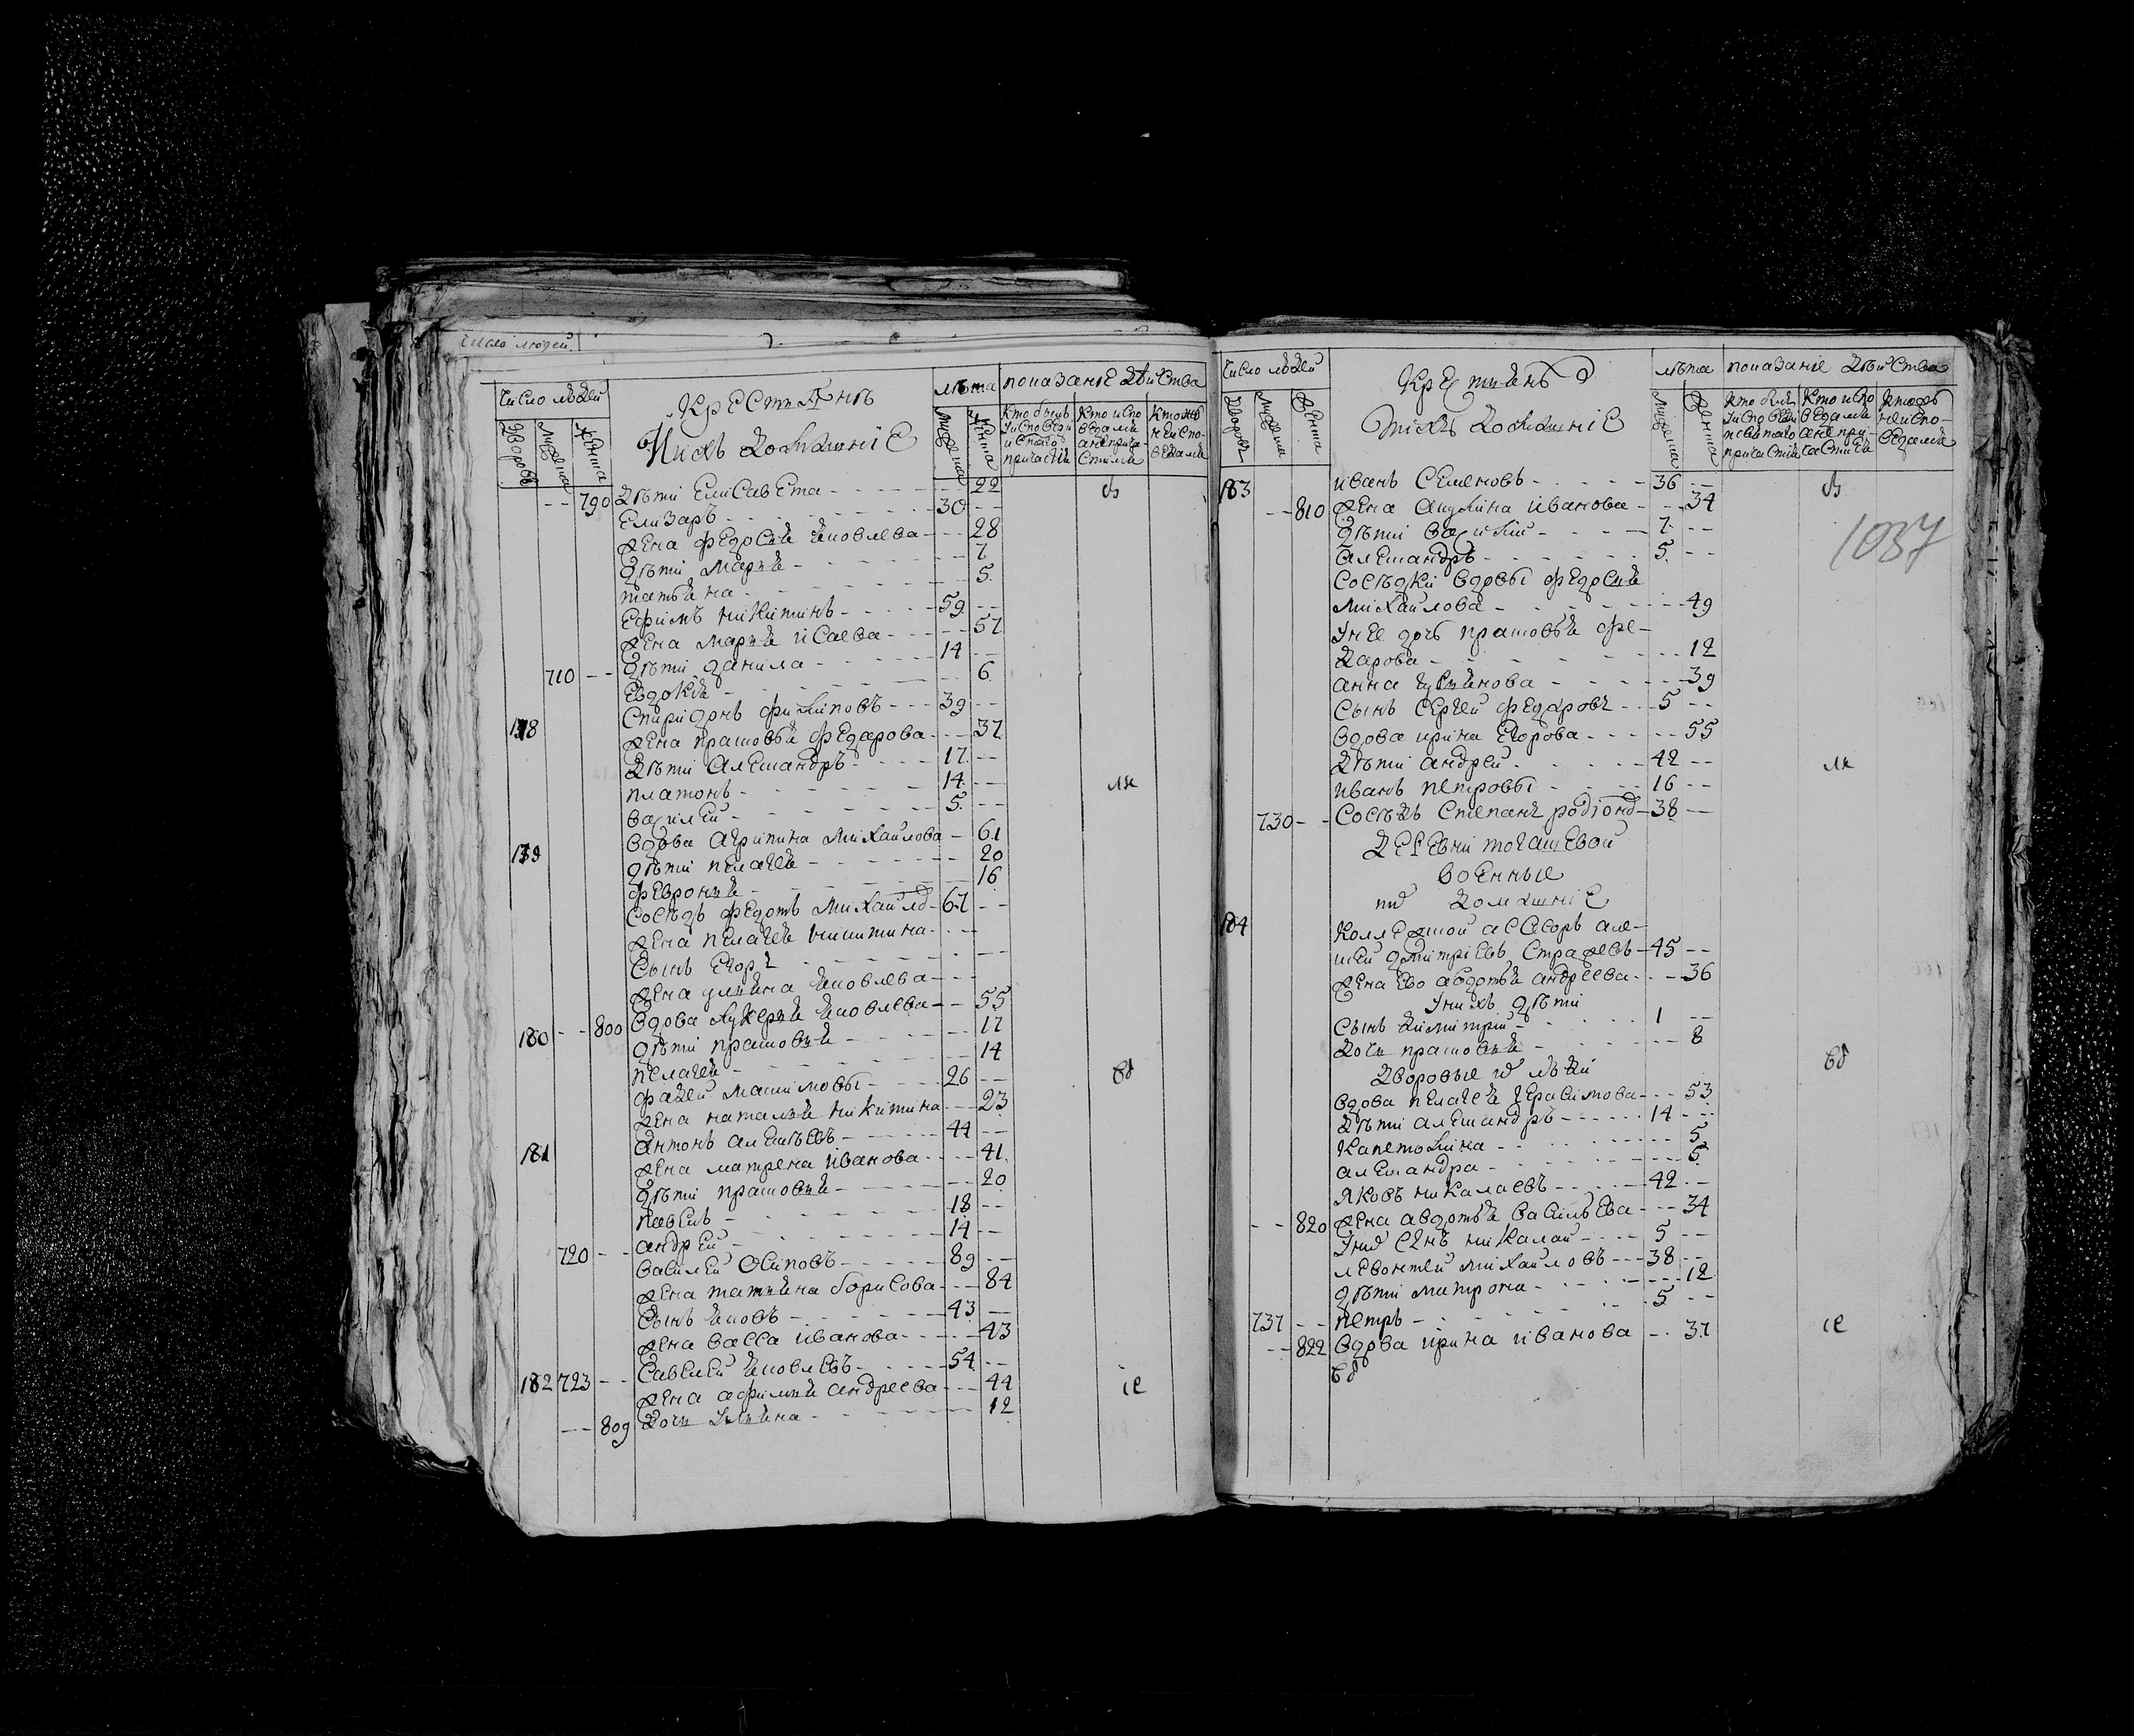 число людей
число людей
крестьянъ
ихъ домашние
лѣта
показание действа
дворовъ
мужеска
женска
мужеска
женска
кто былъ
у исповеди
и с\таго
причастия
кто испо
ведался
а не прича-
стился
кто же
не испо-
ведался
790 дѣти елисавета 22 въ
елизаръ 30
жена федосия яковлева 28
дѣти мария 7
татьяна 5
ефимъ никитинъ 59
жена мария исаева 57
дѣти данила 14
710 евдокия 6
178 спиридонъ филиповъ 39
жена прасковья федарова 37
дѣти александръ 17
платонъ 14 ли
василей 5
179 вдова агрипина михайлова 61
дѣти пелагея 20
феврония 16
сосѣдъ федотъ михайло 67
жена пелагея никитина
сынъ егоръ
жена ульяна яковлева
180 800 вдова лукерья яковлева 55
дѣти прасковья 17
пелагея 14
фадей 26
жена наталья никитина 23
181 антонъ алексѣевъ 44
жена матрена иванова 41
дѣти прасковья 20
павелъ 18
андрей 14
720 василей осиповъ 89
жена татьяна борисова 84
сынъ яковъ 43
жена васса иванова 43
182 723 савелей яковлевъ 54
жена афимья андреева 44 ie
809 дочь ульяна 12
число людей
крестьянъ
ихъ домашние
лѣта
показание действа
дворовъ
мужеска
женска
мужеска
женска
кто былъ
у исповеди
и святаго
причастия
кто испо
ведался
а не при-
частился
кто жъ
не испо-
ведался
183 иванъ семеновъ 36 въ
810 жена акулина иванова 34
дѣти василий 7
александръ 5
1037
сосѣдки вдовы федосия
михайлова 49
у нее дочь прасковья фе-
дарова 12
анна 39
сынъ сергей федаровъ 5
вдова ирина егорова 55
дѣти андрей 42 ли
иванъ петровы 16
730 сосѣдъ степанъ родионо 38
деревни тогашевой
военные
домашние
184 коллежской ассесоръ але-
ксей дмитриевъ 45
жена ево авдотья андреева 36
у нихъ дѣти
сынъ димитрий 1
дочь прасковья 8
дворовые людей
вдова пелагея герасимова 53
дѣти александръ 14
капетолина 5
александра 5
яковъ никалаевъ 42
820 жена авдотья васильева 34
сынъ никалай 5
левонтей михайловъ 38
дѣти матрона 12
737 петръ 5
822 вдова ирина иванова 37 ie